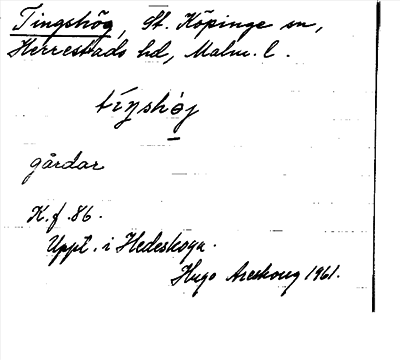 Tingshög, St. Köpinge sn,
Herrestads hd, Malm. l.
tíŋshö̀j
gårdar
K.f. 86.
Uppt. i Hedeskoga.
Hugo Areskoug 1961.